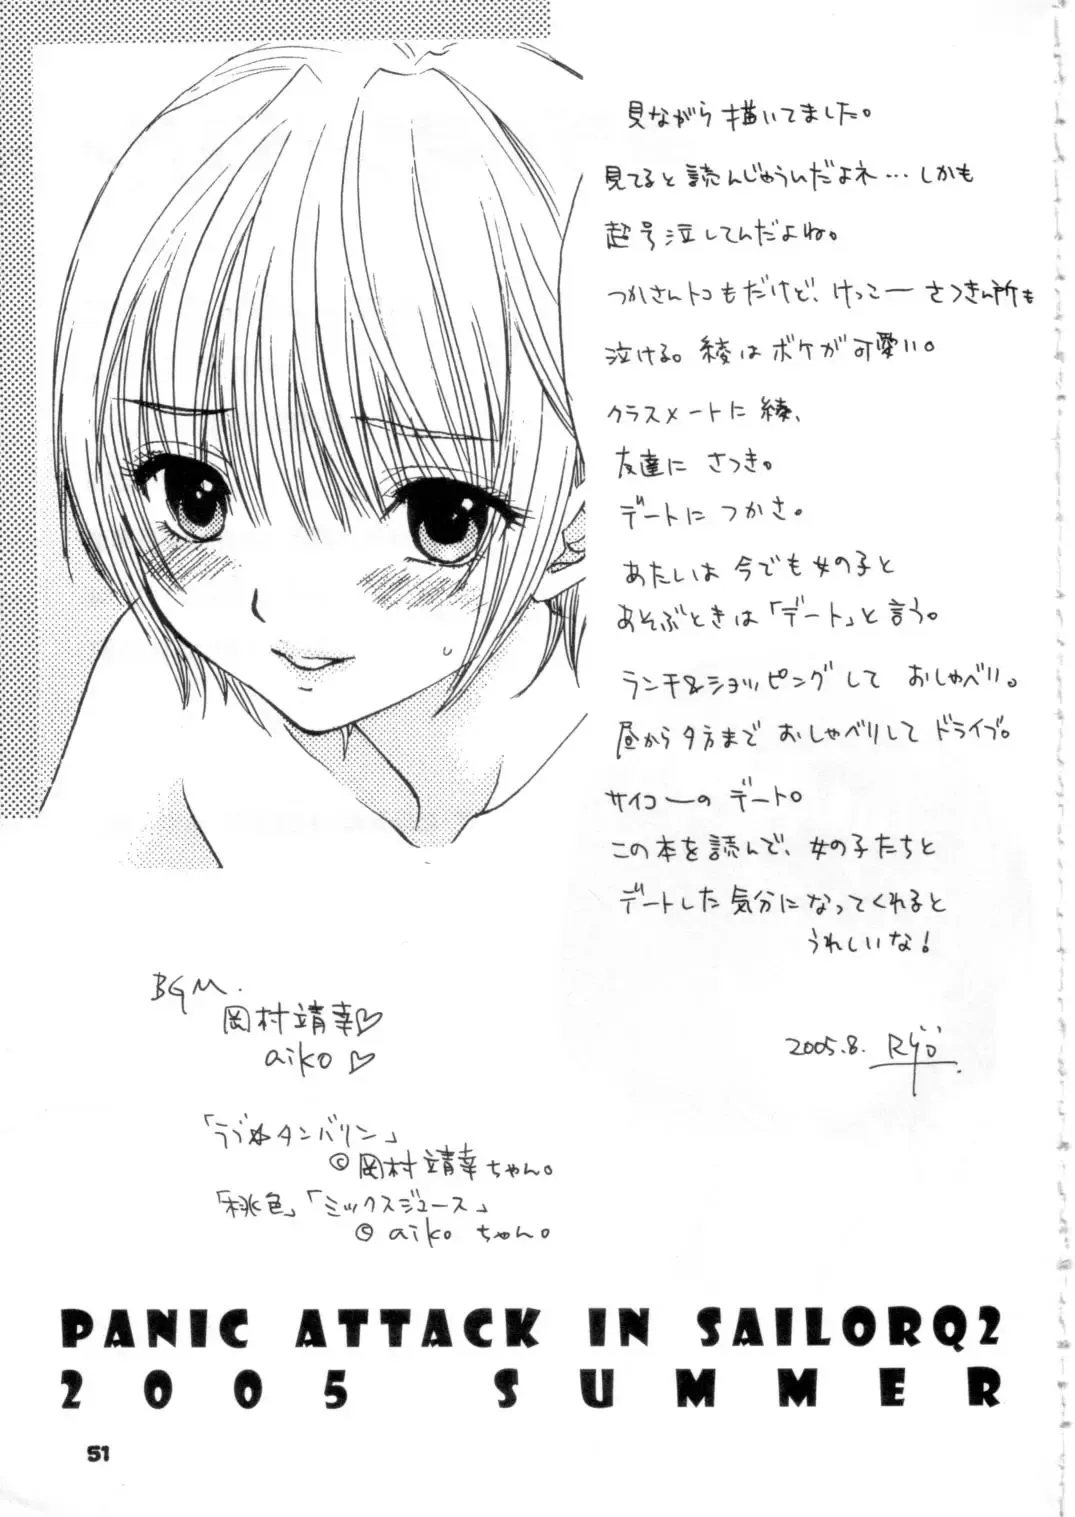 見ながら描いてました。
見てると読んじゅういだよネ…しかも
超号泣してんだよね。
つかさんトコもだけど、けっこーさつきん所も
泣ける。綾はボケが可愛い。
クラスメートに綾、
友達にさつき。
デートにつかさ。
あたいは今でも女の子と
あそぶときは「デート」と言う。
ランチ&ショッピングしておしゃべり。
昼から夕方までおしゃべりしてドライブ。
サイコーのデート。
この本を読んで、女の子たちと
デートした気分になってくれると
うれしいな!
2005.8. Ryo
BGM.
岡村靖幸♡
aiko♡
「ラブ☆タンバリン」
©岡村靖幸ちゃん。
「桃色」「ミックスジュース」
© aikoちゃん。
PANIC ATTACK IN SAILORQ2
2005 SUMMER
51